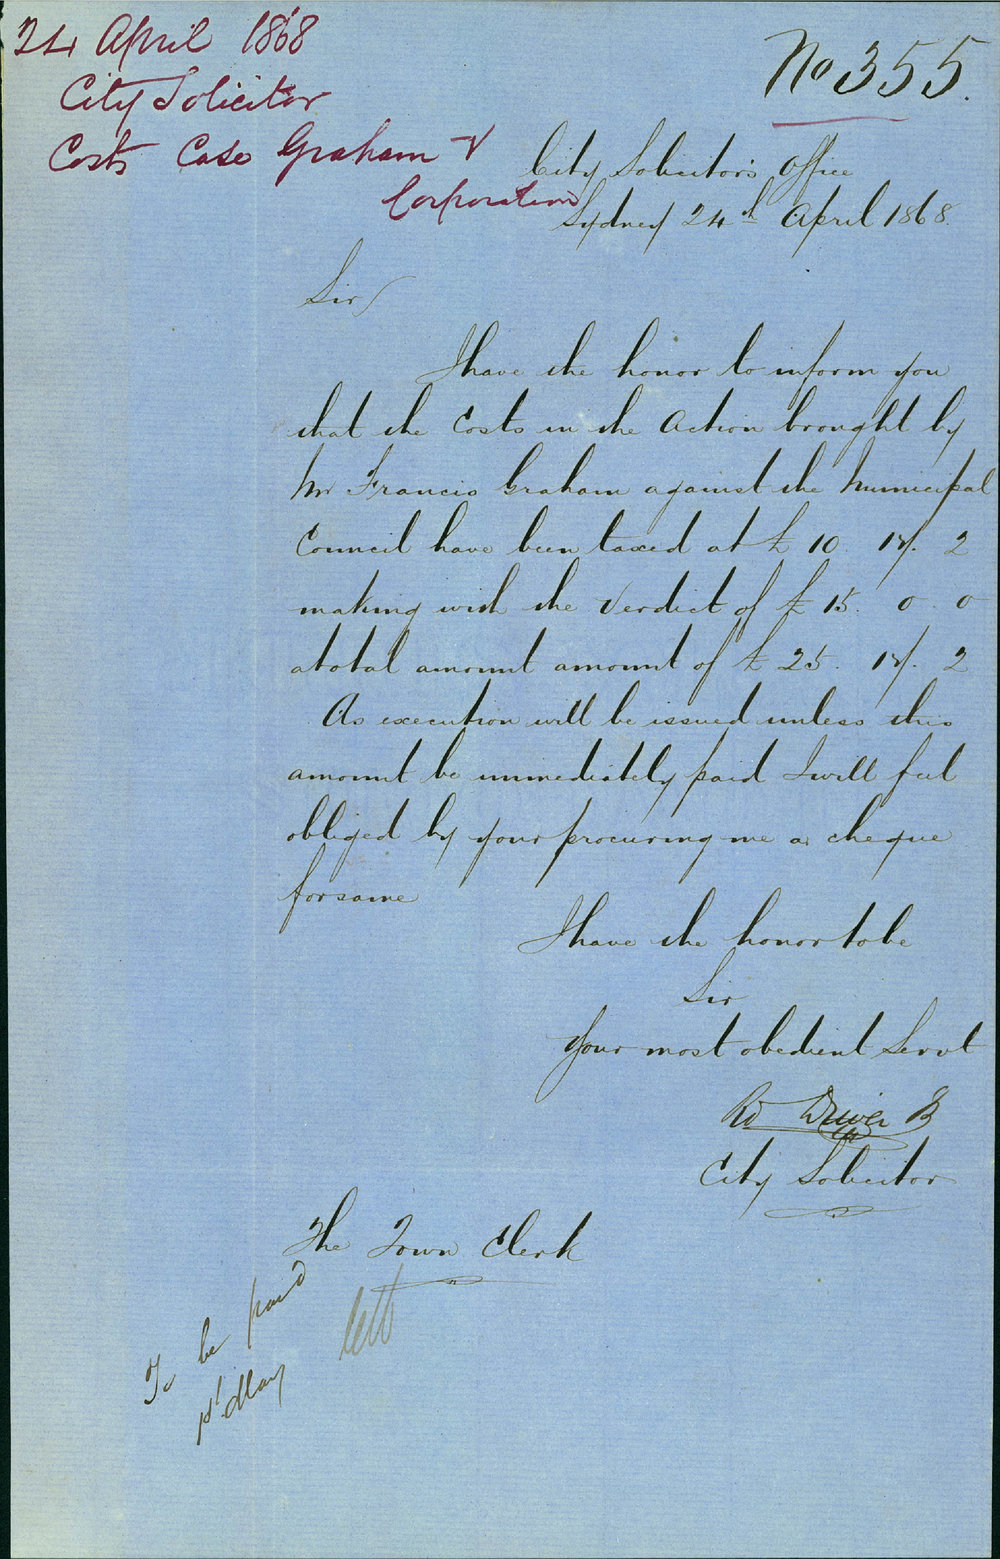 24 April 1868
City Solicitor
Costs Case Graham v
Corporation
No 355.
City Solicitor's Office
Sydney 24th April 1868.
Sir
I have the honor to inform you
that the Costs in the Action brought by
Mr Francis Graham against the Municipal
Council have been taxed at £ 10. 17. 2
making with the Verdict of £ 15. 0. 0
a total amount amount of £ 25. 17. 2
As execution will be issued unless this
amount be immediately paid I will feel
obliged by your procuring me a cheque
for same
I have the honor to be
Sir
Your most obedient Servt
Rd Driver
City Solicitor
The Town Clerk
To be paid
1st May